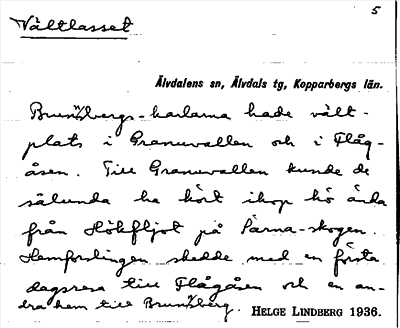 5
Vältlasset
Älvdalens sn, Älvdals tg, Kopparbergs län.
Brunnbergs-karlarna hade vält-
plats i Granuvallen och i Flåg-
åsen. Till Granuvallen kunde de
sålunda ha kört ihop hö ända
från Hökfljot på Särna-skogen.
Hemforslingen skedde med en första
dagsresa till Flågåsen och en an-
dra hem till Brunnberg.
HELGE LINDBERG 1936.